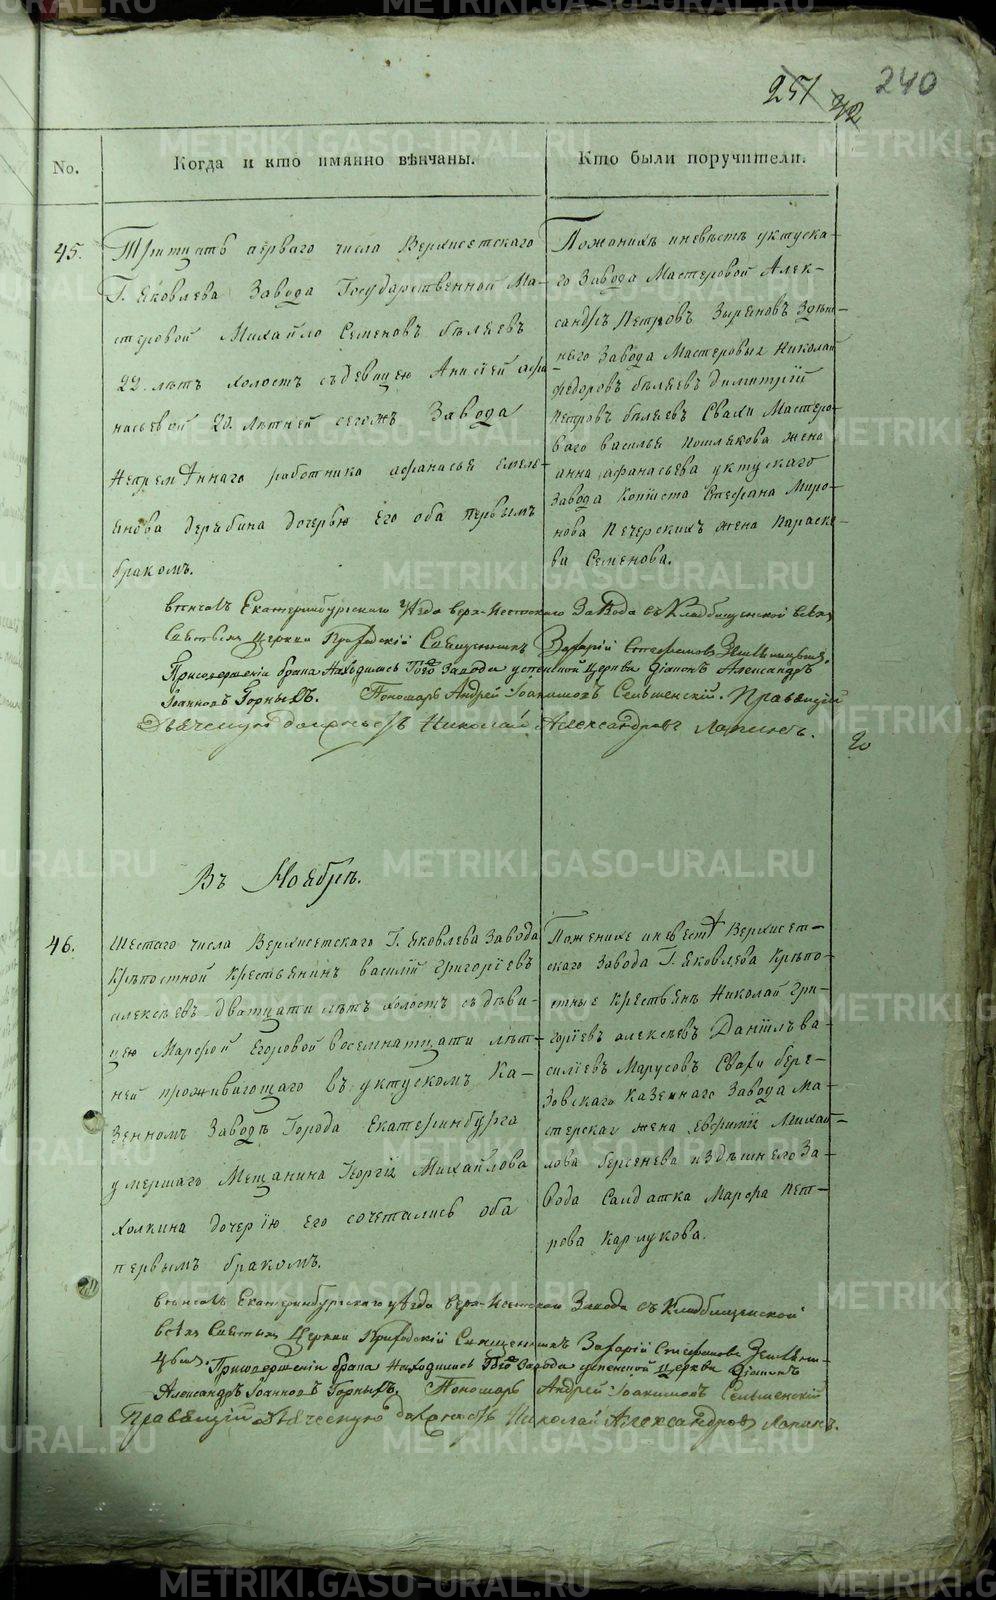 251 42 240
No.
Когда и кто имянно вѣнчаны.
Кто были поручители.
45.
Тритцать перваго числа Верхисетскаго
Г. Яковлева Завода Государственной Ма-
стеровой Михайло Семеновъ бѣляевъ
22. лѣтъ холостъ съ девицею Анисiей афа
насьевой 20. Лѣтней сегожъ Завода
Непремѣннаго работника афанасья емель-
янова дерябина дочерью Его оба первымъ
бракомъ.
Пожанихѣ иневѣстѣ уктуска-
го Завода Мастеровой Алек-
сандръ Петровъ Зыряновъ Здѣш-
няго Завода Мастеровыя Николай
федоровъ бѣляевъ Димитрiй
Петровъ бѣляевъ Свахи Мастеро-
ваго василья жена
анна афанасьева уктускаго
Завода Копiиста Стефана Миро-
нова Печерскихъ жена Параске-
ва Семенова.
вѣнчалъ Екатеринбургскаго уѣзда верх-Исетскаго Завода съ Кладбищенской всѣхъ
Святыхъ Церкви Приходскiй Священникъ Захарiй Стефановъ
Присовершенiи брака Находились Того Завода успенской Церкви Дiаконъ Александръ
Iоанновъ Горныхъ. Пономарь Андрей Iоакимовъ Сельменскiй. Правящiй
Дьяческую должность Николай Александровъ Лапинъ.
Въ Ноябрѣ.
46.
Шестаго числа Верхисетскаго Г. Яковлева Завода
Крѣпостной Крестьянинъ василiй григорiевъ
алексѣевъ дватцати лѣтъ холостъ съ дѣви-
цею Марфой Егоровой восемнатцати лѣт-
ней проживающаго въ уктускомъ Ка-
зенномъ Заводѣ Города Екатеринбурга
умершаго Мещанина Георгiя Михайлова
холкина дочерiю Его сочетались оба
первымъ бракомъ.
Поженихе иневестѣ Верхисет-
скаго Завода Г. Яковлева Крѣпо-
стные Крестьянѣ Николай гри-
горiевъ алексѣевъ Данiилъ ва-
силiевъ Марусовъ Свахи бере-
зовскаго Казеннаго Завода Ма-
стерская жена евфимiя Михай-
лова берсенева издѣшнего За-
вода Салдатка Марфа Пет-
рова Карлукова.
вѣнчалъ Екатеринбургскаго уѣзда верх-Исетскаго Завода съ Кладбищенской
всѣхъ Святыхъ Церкви Приходскiй Священникъ Захарiй Стефановъ
Присовершенiи брака Находились Того Завода успенской Церкви Дiаконъ
Александръ Iоанновъ Горныхъ. Пономарь Андрей Iоакимовъ Сельменскiй
Правящiй Дьяческую должность Николай Александровъ Лапинъ.
METRIKI.GASO-URAL.RU